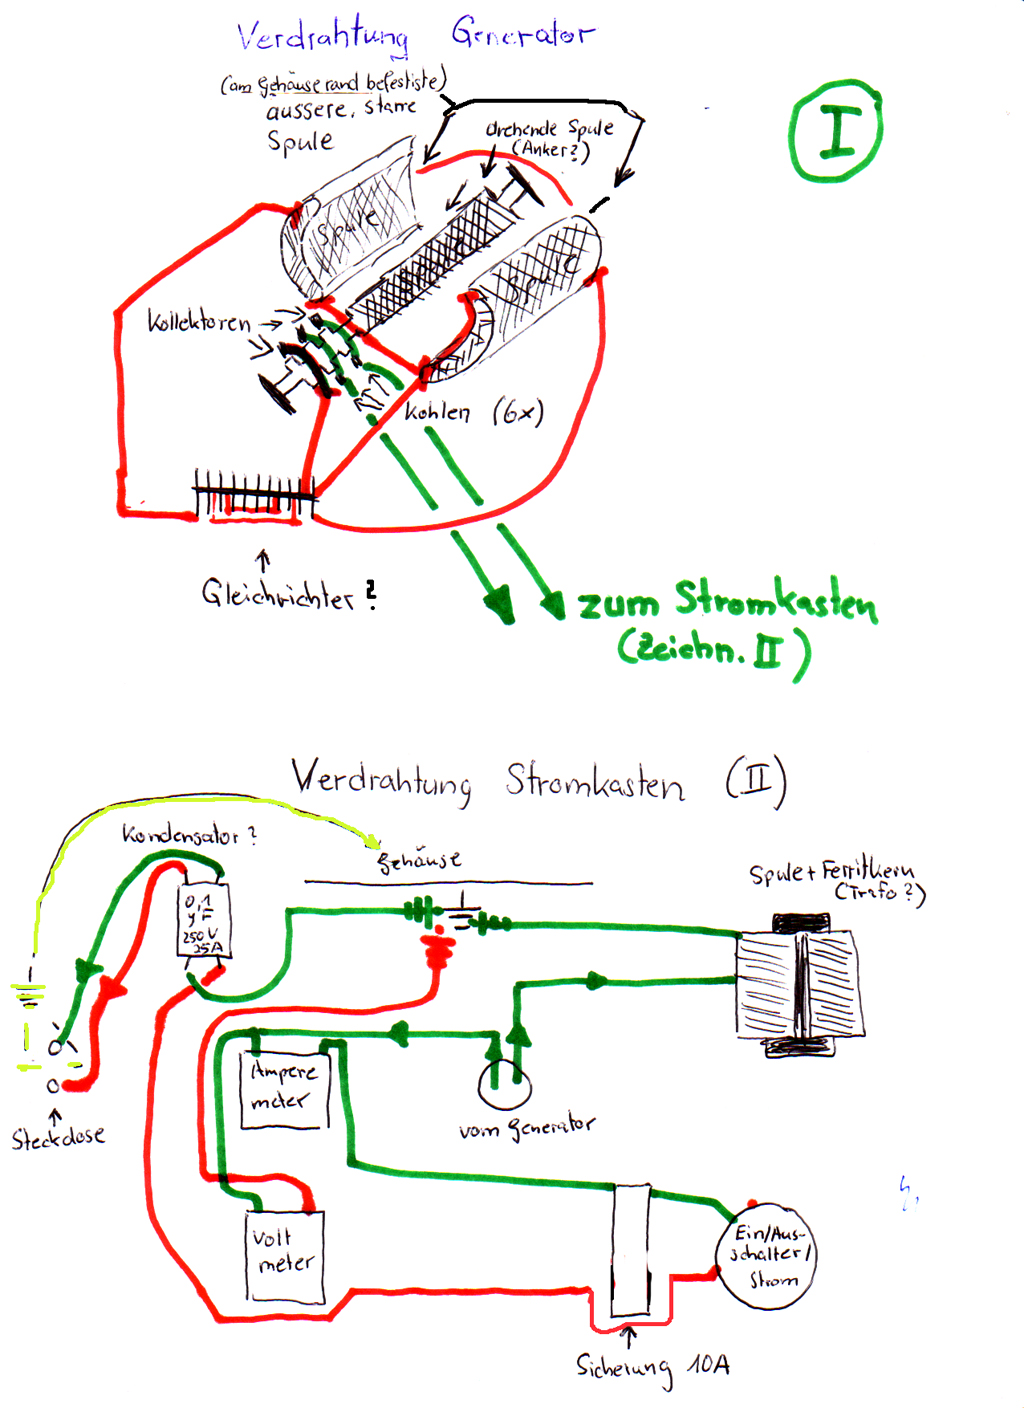 Verdrahtung Generator
(am Gehäuserand befestigte)
äussere, starre
Spule
drehende Spule
(Anker?)
I
Spule
Spule
Kollektoren
Kohlen (6x)
Gleichrichter?
zum Stromkasten
(Zeichn. II)
Verdrahtung Stromkasten (II)
Kondensator?
Gehäuse
Spule + Ferritkern
(Trafo?)
0,1
yF
250V
25A
Ampere
meter
vom Generator
Steckdose
Volt
meter
Ein/Aus-
schalter/
Strom
Sicherung 10A